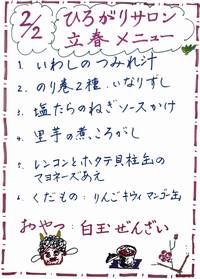 2/2 ひろがりサロン
立春メニュー
1. いわしのつみれ汁
2. のり巻2種、いなりずし
3. 塩たらのねぎソースかけ
4. 里芋の煮ころがし
5. レンコンとホタテ貝柱缶の
マヨネーズあえ
6. くだもの：りんごキウィマンゴー缶
おやつ：白玉ぜんざい